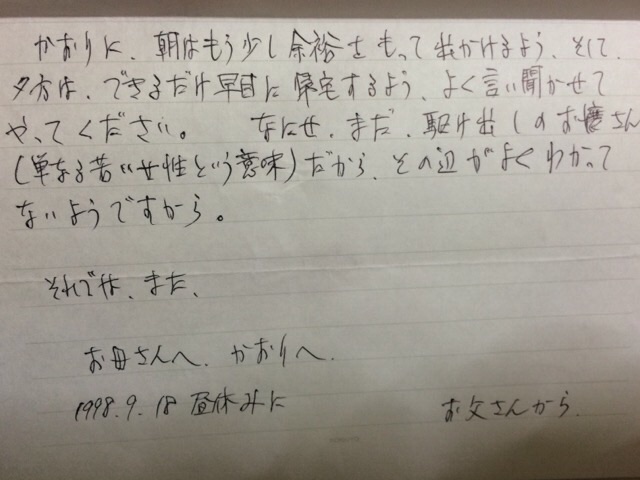 かおりに、朝はもう少し余裕をもって出かけるよう、そして、
夕方は、できるだけ早目に帰宅するよう、よく言い聞かせて
やってください。 なにせ、まだ、駆け出しのお嬢さん
(単なる若い女性という意味)だから、その辺がよくわかって
ないようですから。
それでは、また、
お母さんへ、かおりへ、
1998.9.18 昼休みに お父さんから、